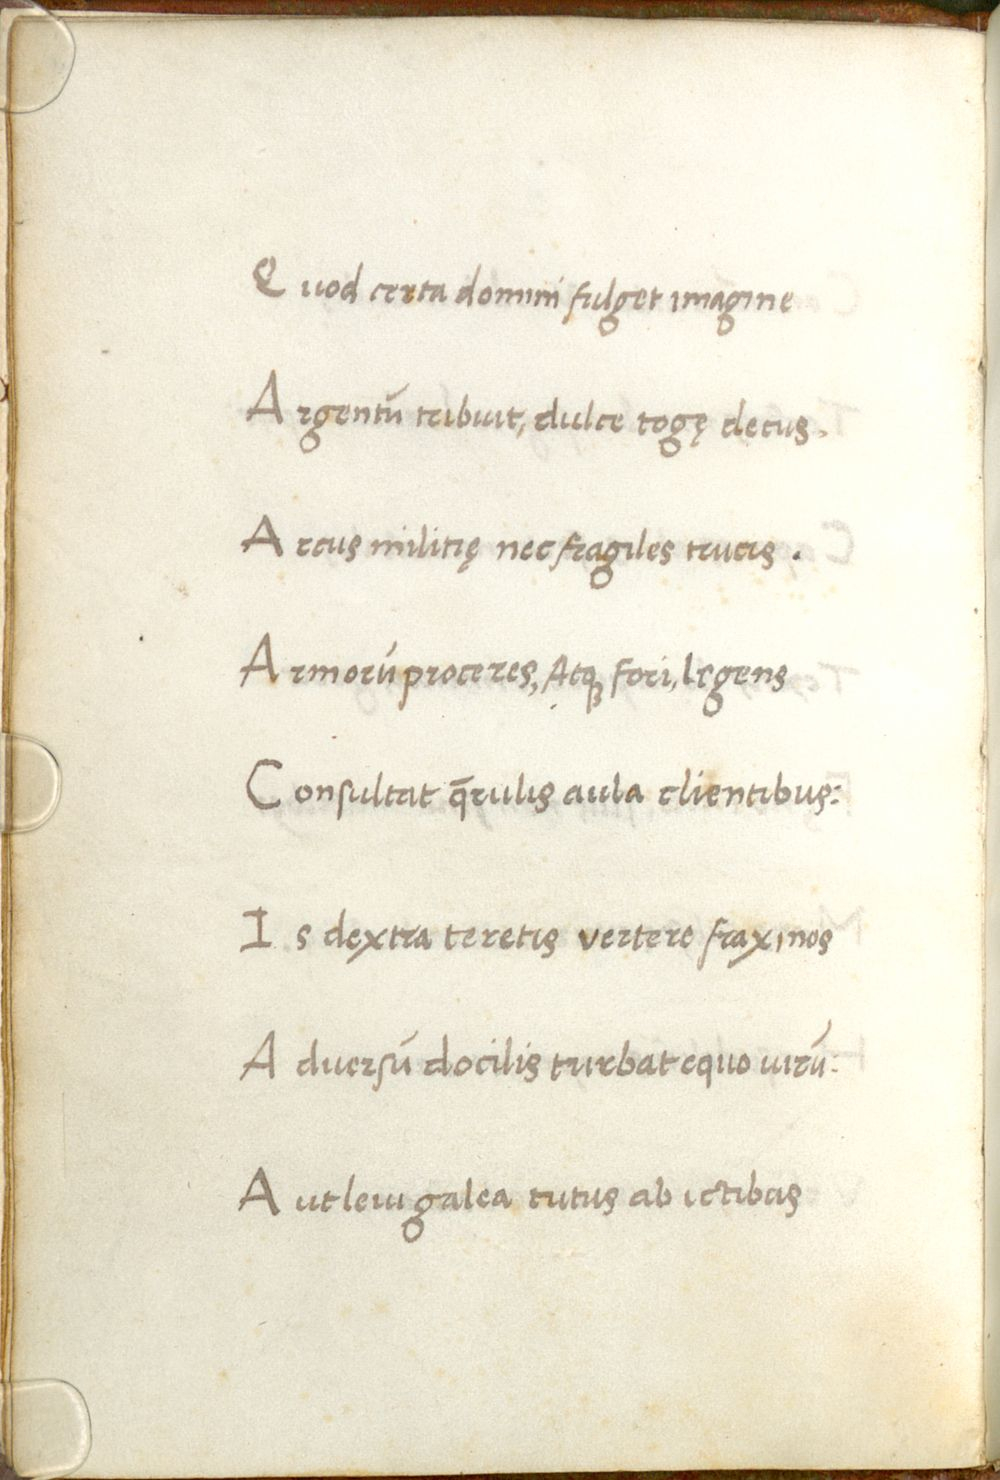 Quod certa domini fulget imagine
Argentū tribuit, dulce togę decus.
Arcus militię nec fragiles trucis.
Armorū proceres, Atqꝫ fori, legens
Consultat q̄rulis aula clientibus:
Is dextra teretis vertere fraxinos
Aduersū docilis turbat equo uirū:
Aut leui galea tutus ab ictibus